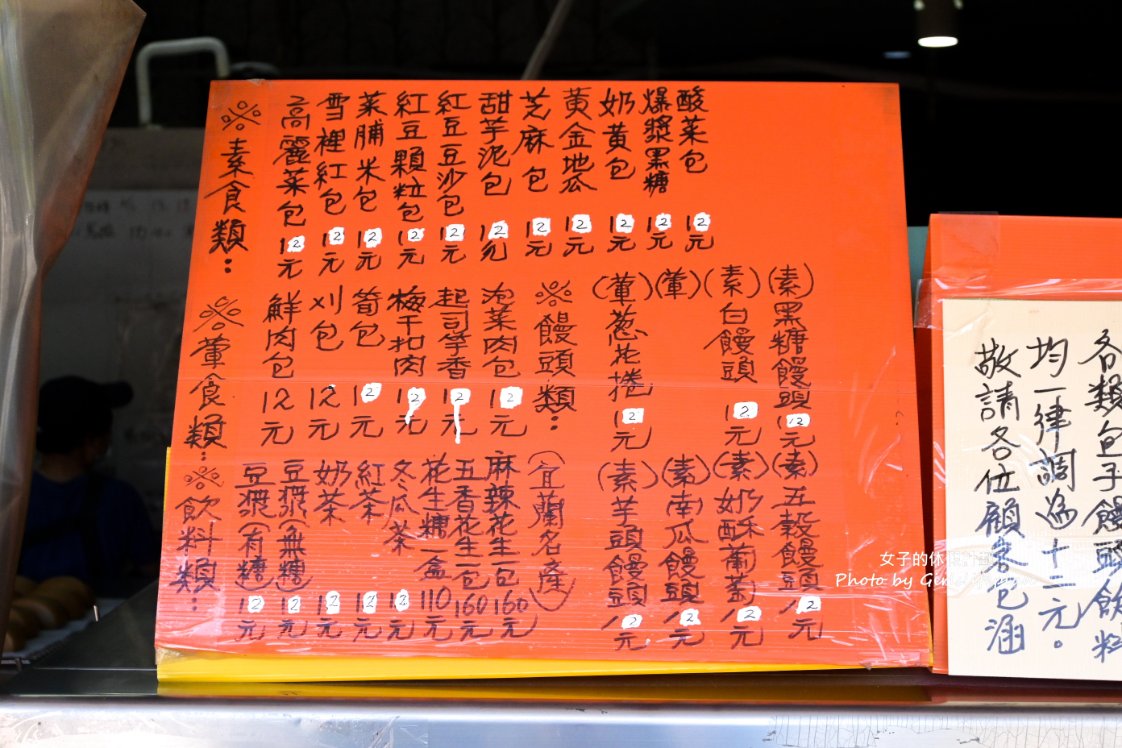 ※素食類：
高麗菜包12元
雪裡紅包12元
菜脯米包12元
紅豆顆粒包12元
紅豆豆沙包12元
甜芋泥包12元
芝麻包12元
黃金地瓜12元
奶黃包12元
爆漿黑糖12元
酸菜包12元
※葷食類：
鮮肉包12元
刈包12元
筍包12元
梅干扣肉12元
起司芋香12元
泡菜肉包12元
※饅頭類：
(葷)蔥花捲12元
(葷)
(素)白饅頭12元
(素)黑糖饅頭12元
(素)芋頭饅頭12元
(素)南瓜饅頭12元
(素)奶酥葡萄12元
(素)五穀饅頭12元
※飲料類：
豆漿(有糖)12元
豆漿(無糖)12元
奶茶12元
紅茶12元
冬瓜茶12元
花生糖一盒110元
五香花生一包160元
麻辣花生一包160元
(宜蘭名產)
各類包子饅頭飲料
均一律調為十二元。
敬請各位顧客包涵
女子的休
Photo by